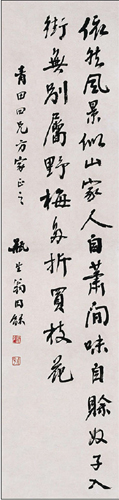 依然風景似山家人自蕭閒味自賒奴子入
街無別屬野梅折買枝花
青田四兄方家正之
瓶生翁同龢